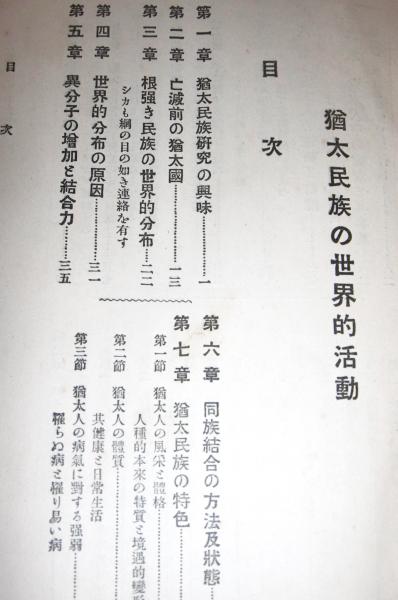 猶太民族の世界的活動
目次
第一章 猶太民族硏究の興味………一
第二章 亡滅前の猶太國………一三
第三章 根强き民族の世界的分布………二二
シカも綱の目の如き連絡を有す
第四章 世界的分布の原因………三一
第五章 異分子の增加と結合力………三五
第六章 同族結合の方法及狀態
第七章 猶太民族の特色
第一節 猶太人の風采と體格
人種的本來の特質と境遇的變形
第二節 猶太人の體質
其健康と日常生活
第三節 猶太人の病氣に對する强弱
罹らぬ病と罹り易い病
目次